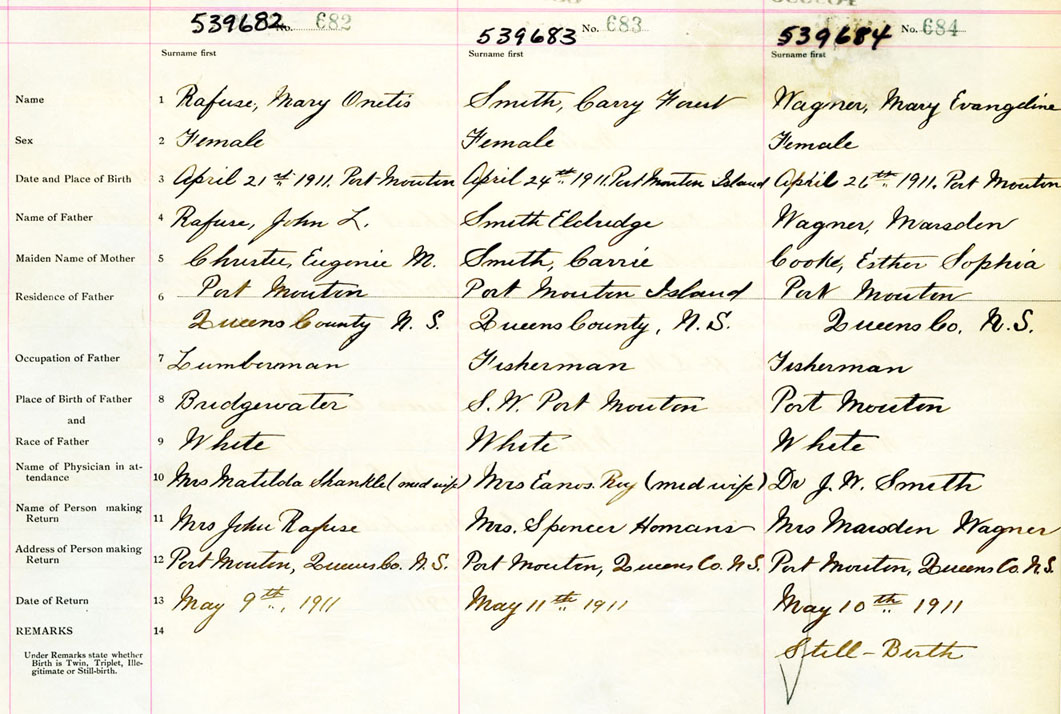 539682 No. 682 539683 No. 683 539684 No. 684
Surname first Surname first Surname first
Name 1 Rafuse, Mary Onetis Smith, Carry Wagner, Mary Evangeline
Sex 2 Female Female Female
Date and Place of Birth 3 April 21st 1911. Port Mouton April 24th 1911. Port Mouton Island April 26th 1911. Port Mouton
Name of Father 4 Rafuse, John L. Smith Eldredge Wagner, Marsden
Maiden Name of Mother 5 Christie, Eugenie M. Smith, Carrie Cooke, Esther Sophia
Residence of Father 6 Port Mouton Port Mouton Island Port Mouton
Queens County N. S. Queens County, N.S. Queens Co, N.S.
Occupation of Father 7 Lumberman Fisherman Fisherman
Place of Birth of Father 8 Bridgewater S.W. Port Mouton Port Mouton
and
Race of Father 9 White White White
Name of Physician in at-
tendance 10 Mrs Matilda Shankle (midwife) Mrs (mid wife) Dr J. W. Smith
Name of Person making
Return 11 Mrs John Rafuse Mrs. Spencer Homans Mrs Marsden Wagner
Address of Person making
Return 12 Port Mouton, Queens Co. N.S. Port Mouton, Queens Co. N.S. Port Mouton, Queens Co. N.S.
Date of Return 13 May 9th, 1911 May 11th 1911 May 10th 1911
REMARKS 14
Still-Birth
Under Remarks state whether
Birth is Twin, Triplet, Ille-
gitimate or Still-birth.